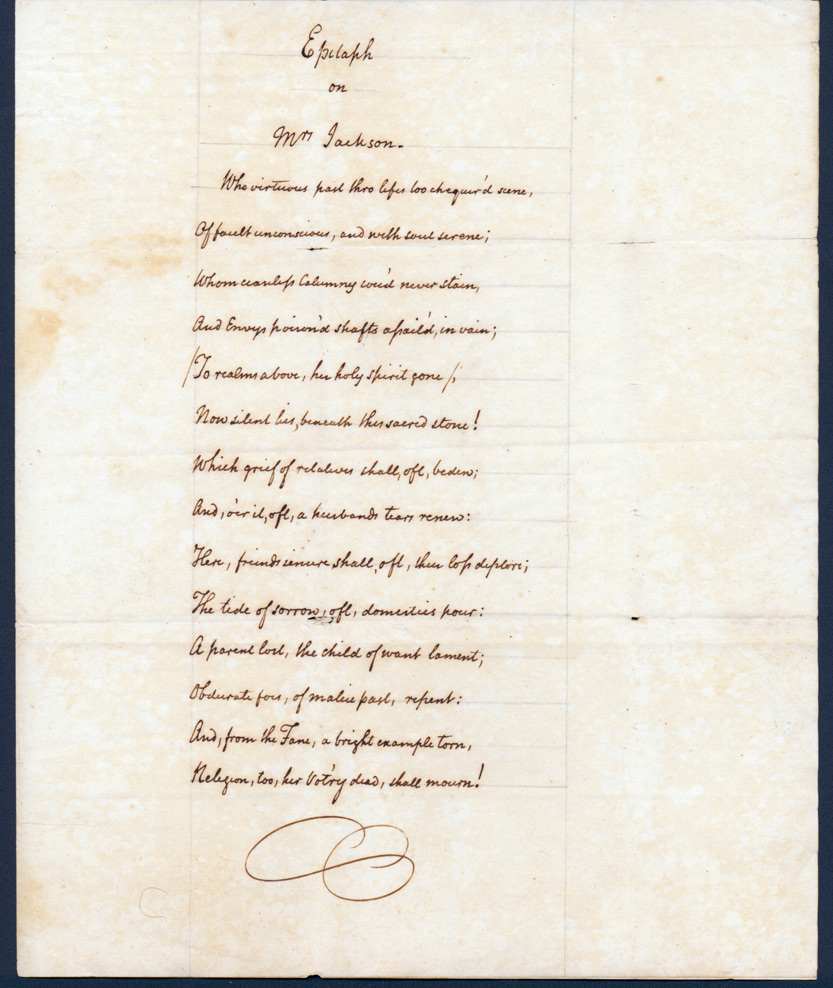 Epitaph
on
Mrs Jackson.
Who virtuous past thro lifes too chequer'd scene,
Of fault unconscious, and with soul serene;
Whom ceaseless Calumny cou'd never stain,
And Envys poison'd shafts assail'd, in vain;
/To realms above, her holy spirit gone/;
Now silent lies, beneath this sacred stone!
Which grief of relatives shall, oft, bedew;
And, o'er it, oft, a husbands tears renew:
Here, friends sincere shall, oft, their loss deplore;
The tide of sorrow, oft, domestics pour:
A parent lost, the child of want lament;
Obdurate foes, of malice past, repent:
And, from the Fane, a bright example torn,
Religion, too, her Vot'ry dead, shall mourn!